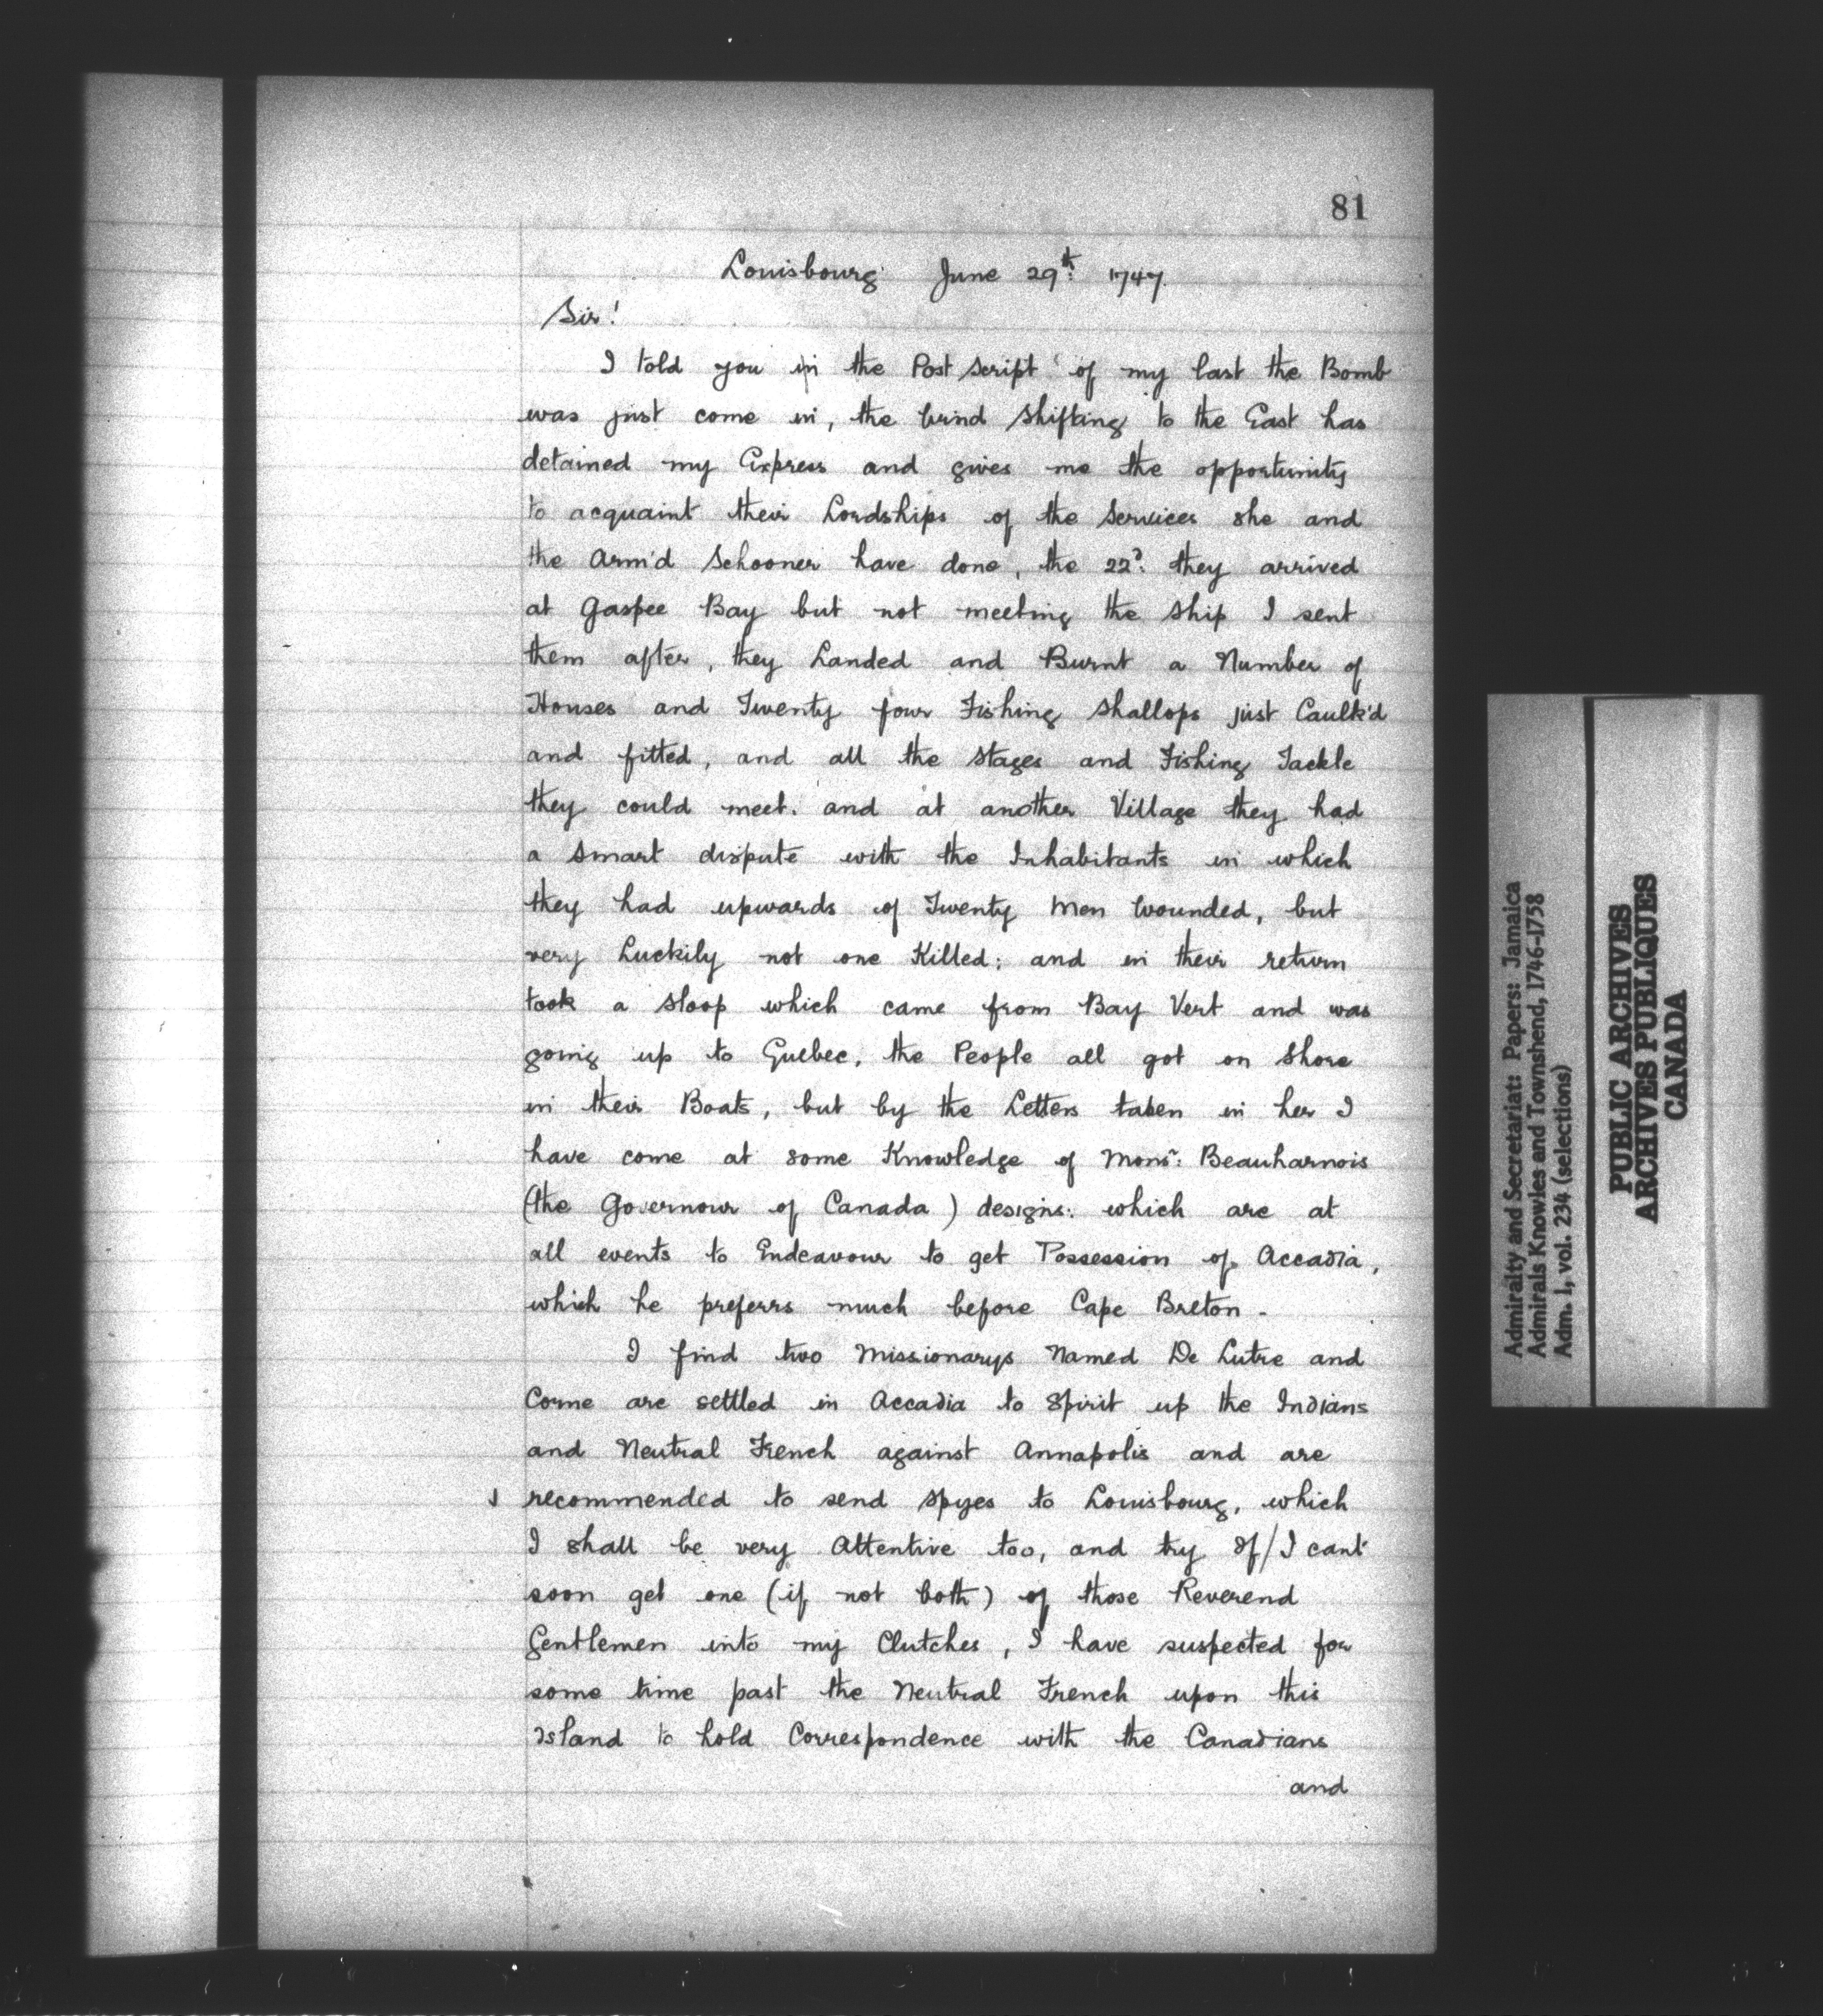 81
Louisbourg June 29th: 1747.
Sir!
I told you in the Post Script of my last the Bomb
was just come in, the Wind Shifting to the East has
detained my Express and gives me the opportunity
to acquaint their Lordships of the Services she and
the Arm'd Schooner have done, the 22d: they arrived
at Gaspee Bay but not meeting the Ship I sent
them after, they Landed and Burnt a Number of
Houses and Twenty four Fishing Shallops just Caulk'd
and fitted, and all the Stages and Fishing Tackle
they could meet. and at another Village they had
a Smart dispute with the Inhabitants in which
they had upwards of Twenty Men Wounded, but
very Luckily not one Killed: and in their return
took a Sloop which came from Bay Vert and was
going up to Quebec, the People all got on Shore
in their Boats, but by the Letters taken in her I
have come at some Knowledge of Monsr: Beauharnois
(the Governour of Canada) designs: which are at
all events to Endeavour to get Possession of Accadia,
which he preferrs much before Cape Breton -
I find two Missionarys Named De Lutre and
Corne are settled in Accadia to Spirit up the Indians
and Neutral French against Annapolis and are
recommended to send Spyes to Louisbourg, which
I shall be very Attentive too, and try If/I cant
soon get one (if not both) of those Reverend
Gentlemen into my Clutches, I have suspected for
some time past the Neutral French upon this
Island to hold Correspondence with the Canadians
and
Admiralty and Secretariat: Papers: Jamaica
Admirals Knowles and Townshend, 1746-1758
Adm. 1, vol. 234 (selections)
PUBLIC ARCHIVES
ARCHIVES PUBLIQUES
CANADA